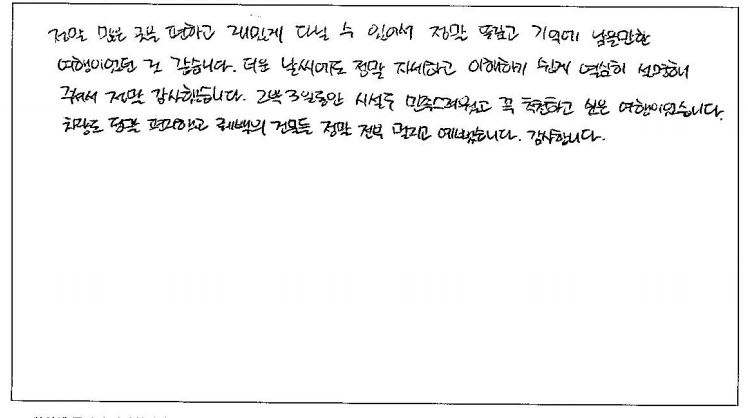 정말 많은 곳을 편하고 재밌게 다닐 수 있어서 정말 뜻깊고 기억에 남을만한
여행이었던 것 같습니다. 더운 날씨에도 정말 자세하고 이해하기 쉽게 열심히 설명해
주셔서 정말 감사했습니다. 2박 3일동안 시설도 만족스러웠고 꼭 추천하고 싶은 여행이었습니다.
차량도 정말 편리했고 퀘백의 건물들 정말 전부 멋지고 예뻤습니다. 감사합니다.